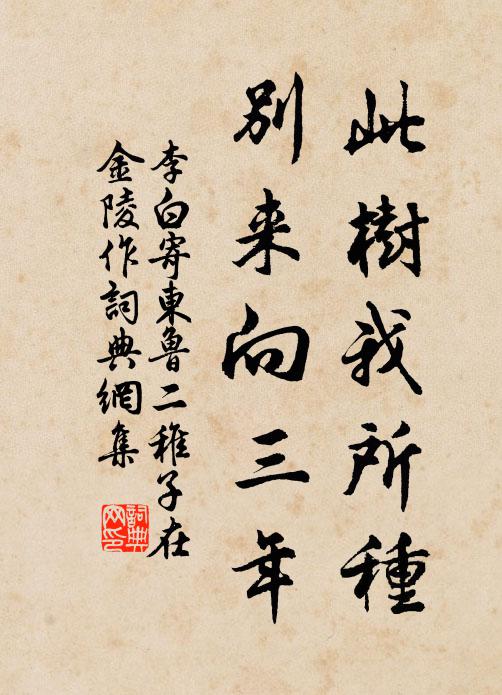 此樹我所種
別来向三年
李白寄東魯二稚子在
金陵作詞典網集
詞典
网印